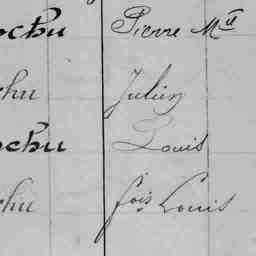 ochu Pierre Mie
chu Julien
ochu Louis
chu fois Louis